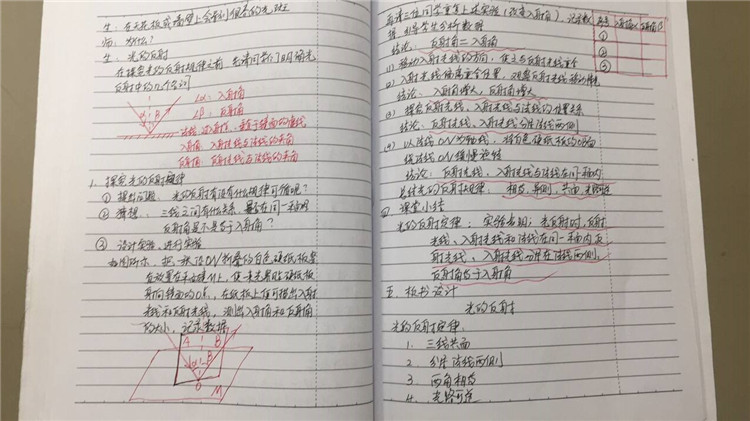 生：在天花板或墙壁上会看到很亮的光斑
师：为什么？
生：光的反射
在探究光的反射规律之前，先请同学们明确光
反射中的几个名词
∠α：入射角
∠β：反射角
法线：过入射点，垂直于镜面的直线
入射角：入射光线与法线的夹角
反射角：反射光线与法线的夹角
1. 探究光的反射规律
① 提出问题：光的反射有没有什么规律可循呢？
② 猜想：三线之间有什么关系，是否在同一平面内
反射角是不是等于入射角？
③ 设计实验，进行实验
如图所示，把一块沿ON折叠的白色硬纸板垂
直放置在平面镜M上，使一束光紧贴硬纸板
射向镜面的O点，在纸板上便可描出入射
光线和反射光线，测出入射角和反射角
的大小，记录数据
A B
α β
O M
再请三位同学重复上述实验（改变入射角），记录数
据，引导学生分析数据
序号 入射角α 反射角β
①
②
③
结论：反射角=入射角
(1) 移动入射光线的方向，使之与反射光线重合
(2) 入射光线偏离垂直位置，观察反射光线移动情况
结论：入射角增大，反射角增大
(3) 探究反射光线、入射光线与法线的位置关系
结论：反射光线、入射光线分居法线两侧
(4) 以法线ON为轴线，将白色硬纸板的OB面
绕法线ON缓慢旋转
结论：反射光线、入射光线与法线在同一平面内
总结光的反射规律：相等、两侧、共面、光路可逆
四、课堂小结
光的反射定律：实验表明：光反射时，反射
光线、入射光线和法线在同一平面内，反
射光线、入射光线分居在法线两侧，
反射角等于入射角
五、板书设计
光的反射
光的反射定律：
1. 三线共面
2. 分居法线两侧
3. 两角相等
4. 光路可逆